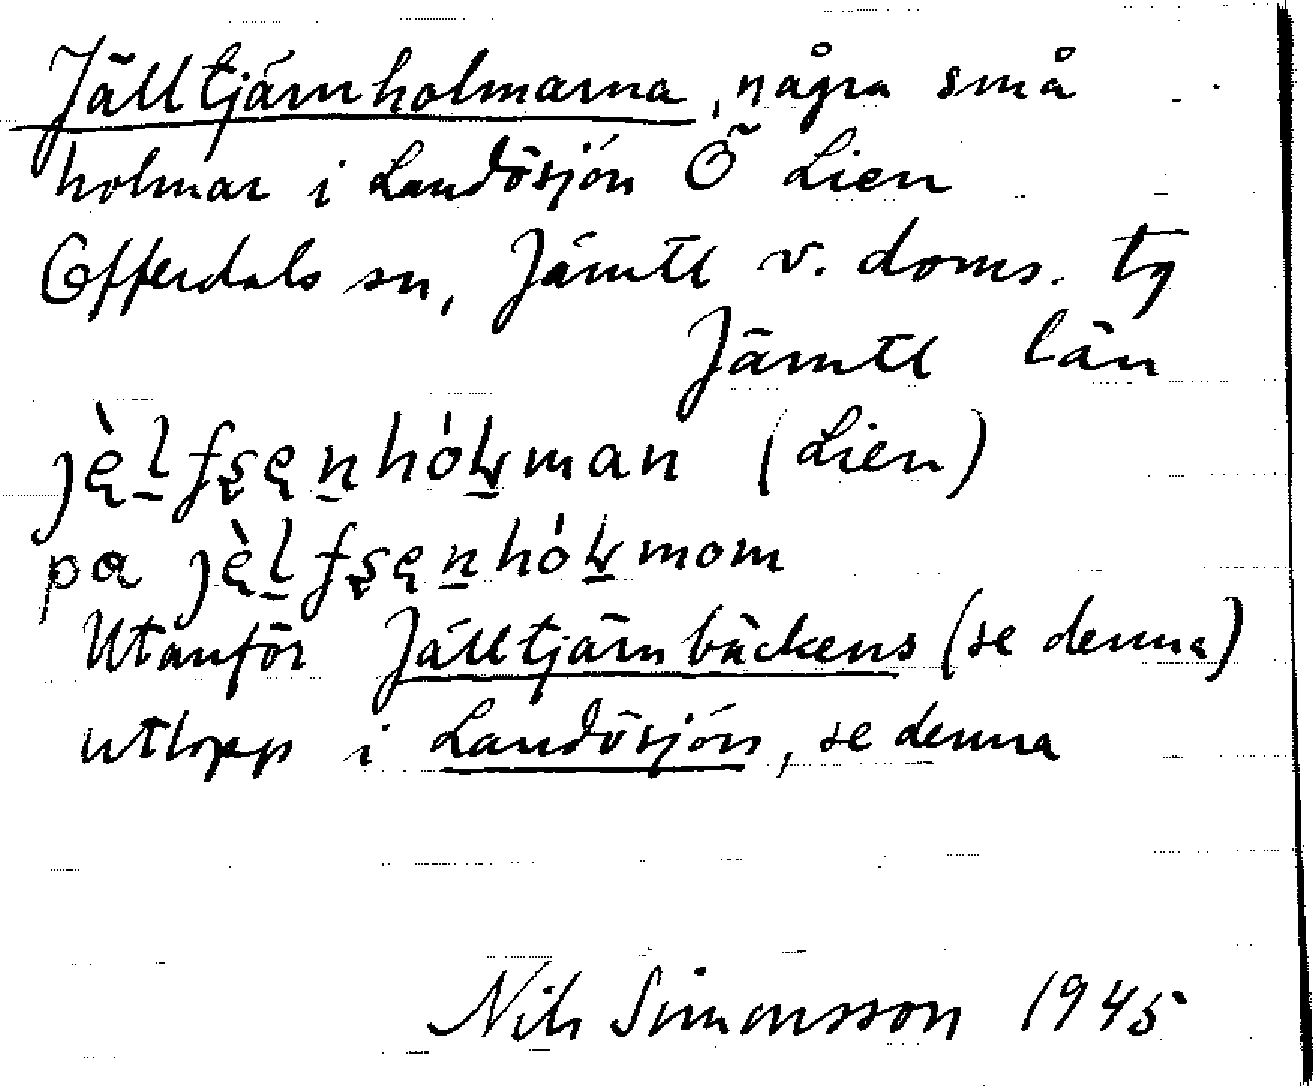 Jälltjärnholmarna, några små
holmar i Landösjön Ö Lien
Offerdals sn, Jämtl v. doms. tg
Jämtl län
(Lien)
på
Utanför Jälltjärnbäckens (se denna)
utlopp i Landösjön, se denna
Nils Simonsson 1945